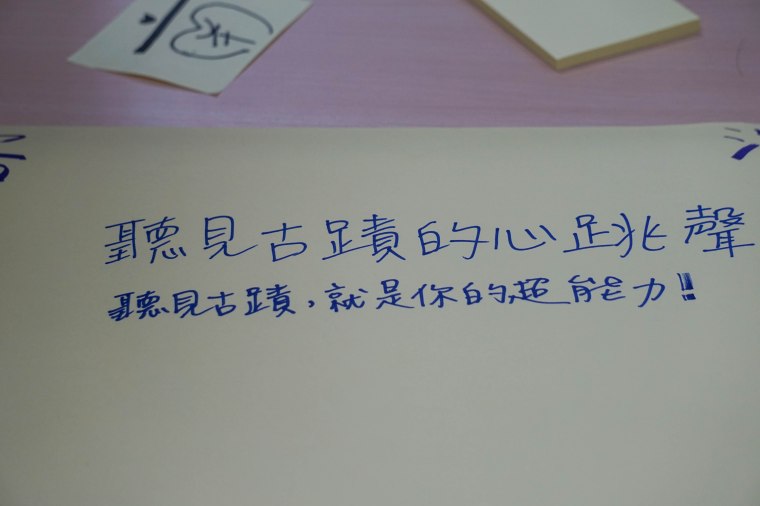 聽見古蹟的心跳聲
聽見古蹟，就是你的超能力！